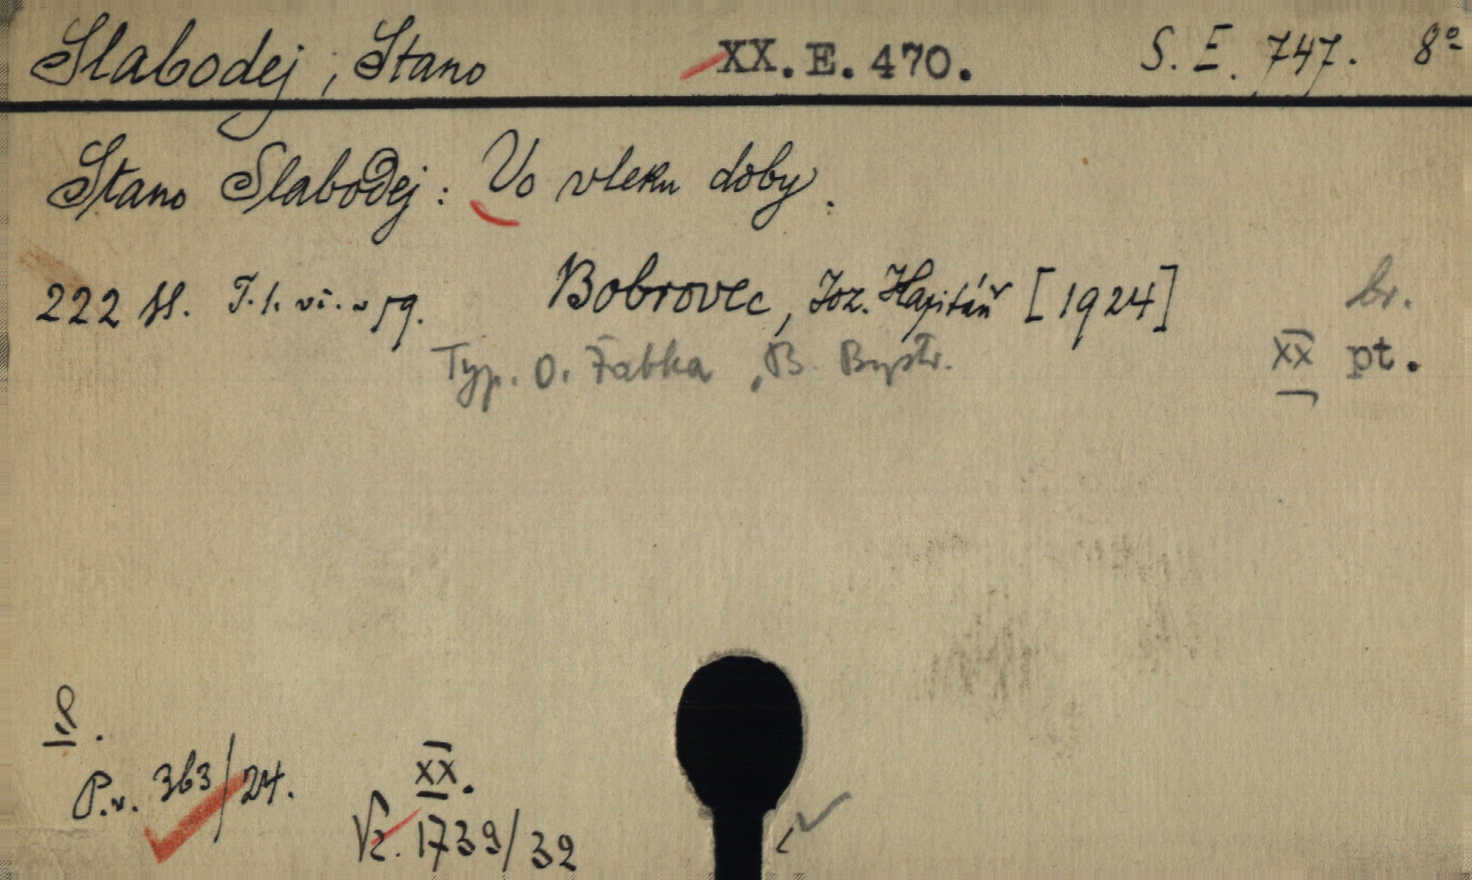 Slabodej, Stano XX. E. 470. S. E. 747. 8º
Stano Slabodej: Vo vleku doby.
222 st. T. l. Bobrovec, Joz. Kapitáň [1924] br.
Typ. O. Žabka, B. Bystr. XX pt.
P.v. 363/24. XX.
Vz. 1739/32